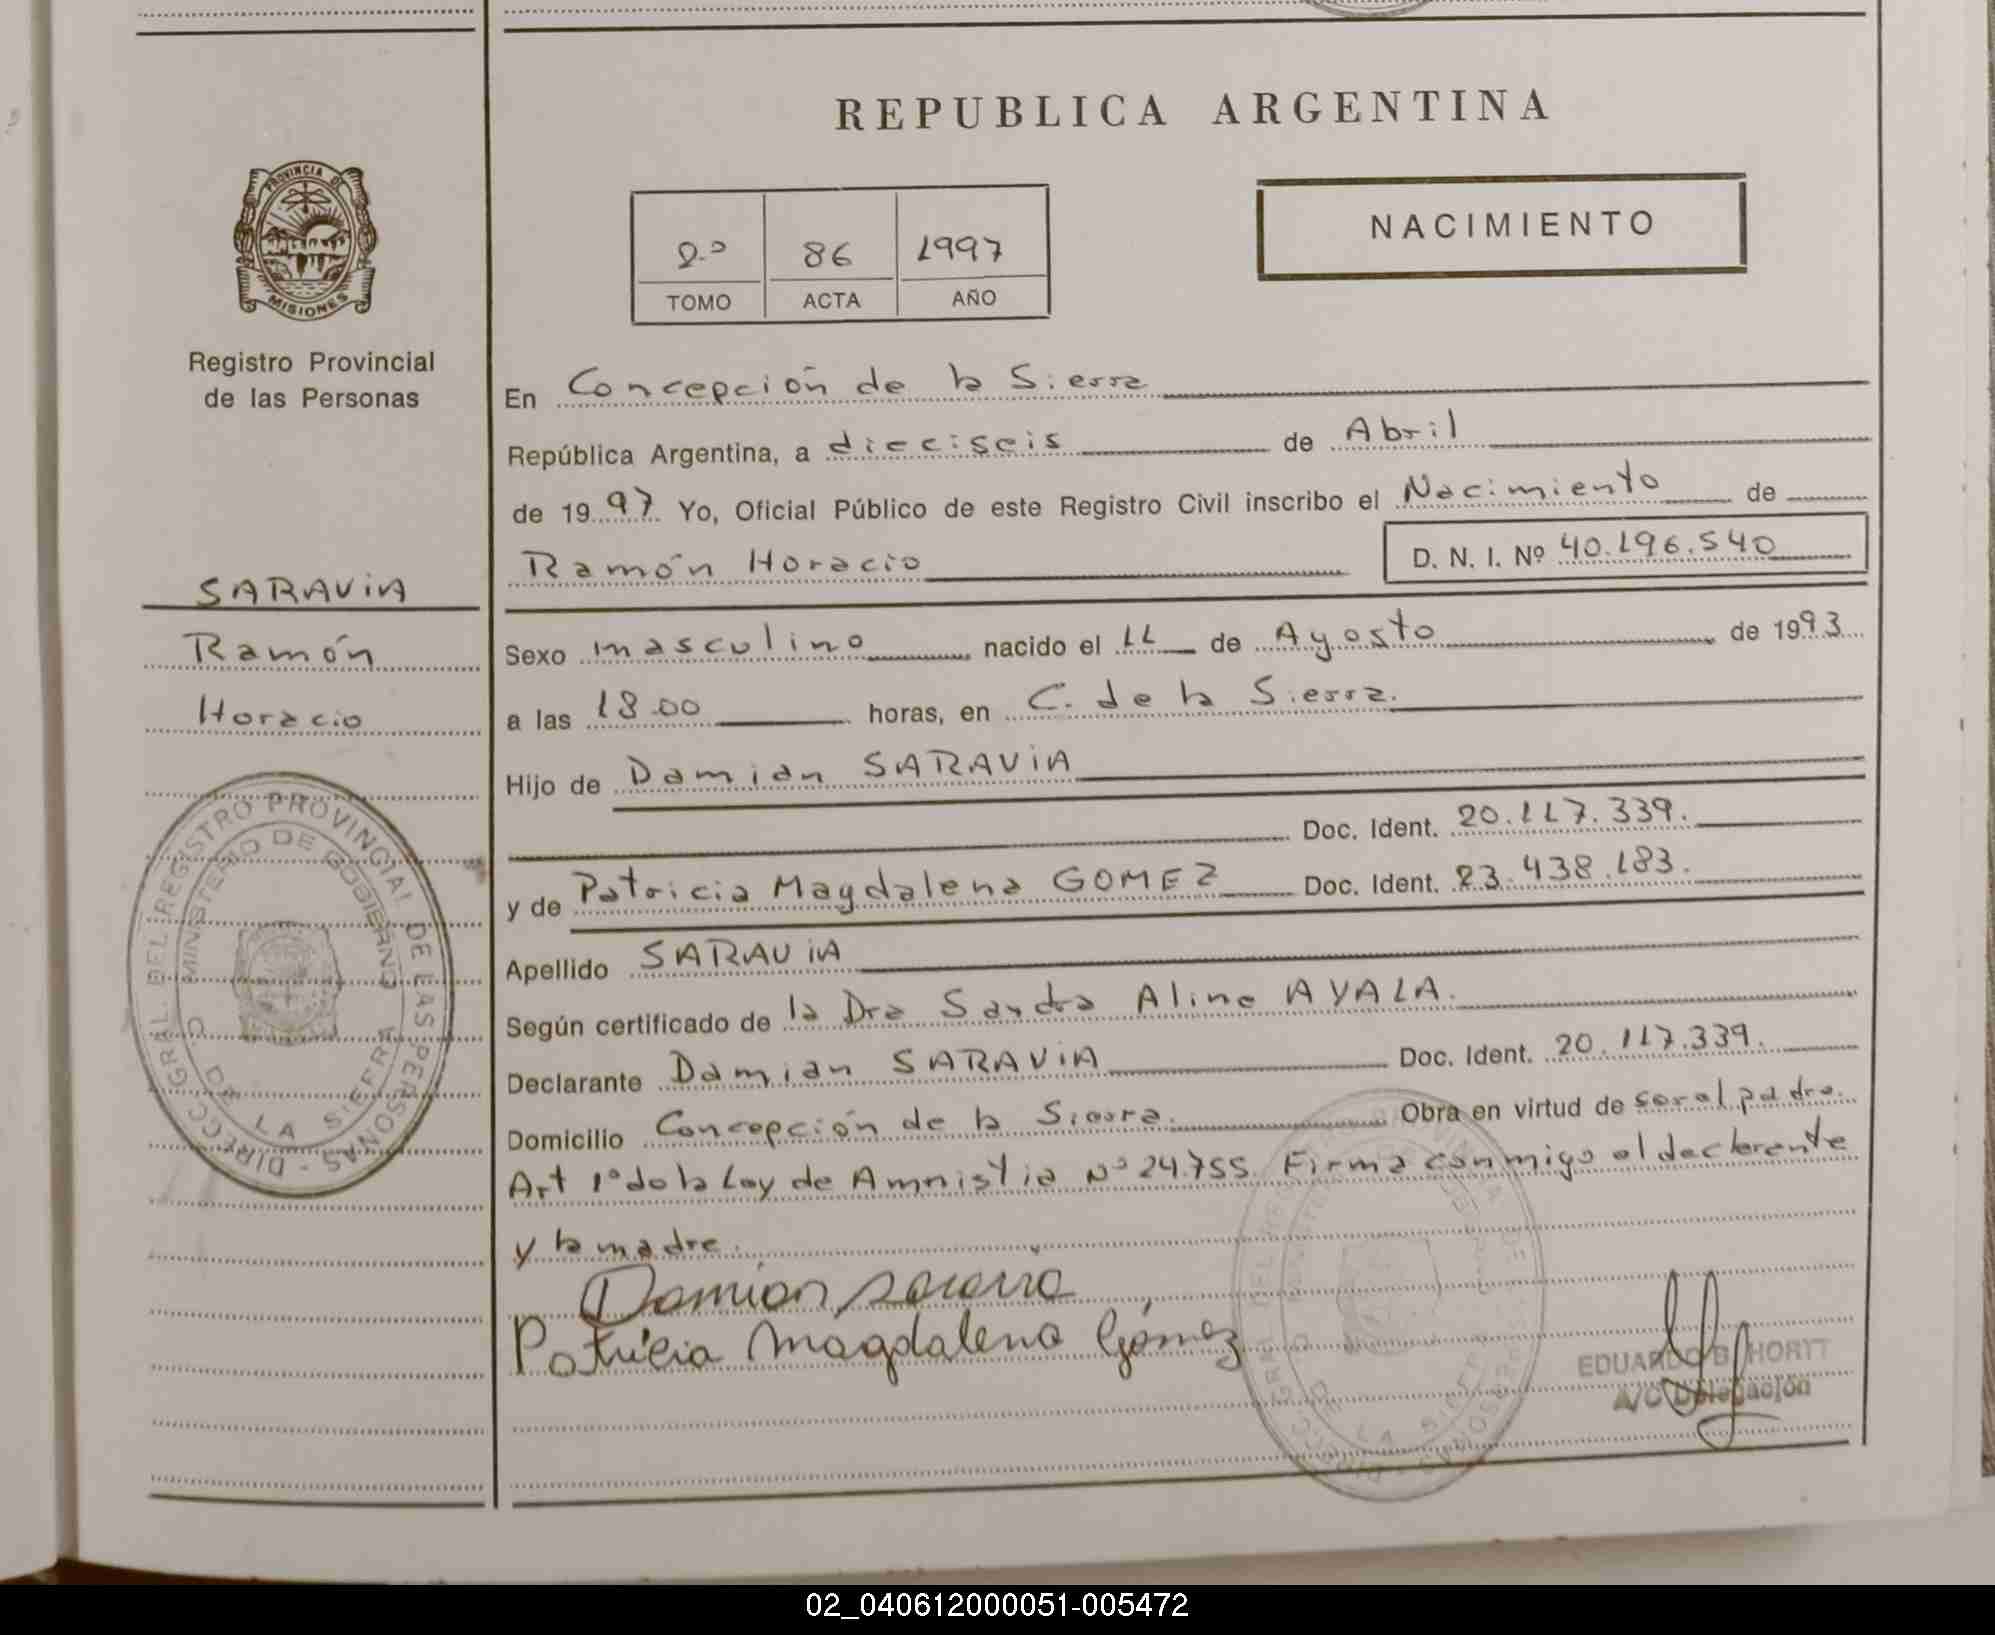 REPUBLICA ARGENTINA
PROVINCIA DE
MISIONES
Registro Provincial
de las Personas
2.º 86 1997
TOMO ACTA AÑO
NACIMIENTO
SARAVIA
Ramón
Horacio
DIRECC. GRAL. DEL REGISTRO PROVINCIAL DE LAS PERSONAS -
MINISTERIO DE GOBIERNO
C. DE LA SIERRA
En Concepción de la Sierra
República Argentina, a dieciseis de Abril
de 1997 Yo, Oficial Público de este Registro Civil inscribo el Nacimiento de
Ramón Horacio D. N. I. Nº 40.196.540
Sexo masculino nacido el 11 de Agosto de 1993
a las 18.00 horas, en C. de la Sierra.
Hijo de Damian SARAVIA
Doc. Ident. 20.117.339.
y de Patricia Magdalena GOMEZ Doc. Ident. 23.438.183.
Apellido SARAVIA
Según certificado de la Dra Sandra Aline AYALA.
Declarante Damian SARAVIA Doc. Ident. 20.117.339.
Domicilio Concepción de la Sierra. Obra en virtud de ser el padre.
Art 1º de la Ley de Amnistia Nº 24.755. Firma conmigo el declarente
y la madre.
Damian Saravia
Patricia Magdalena Gómez
EDUARDO B. HORTT
A/C Delegación
02_040612000051-005472